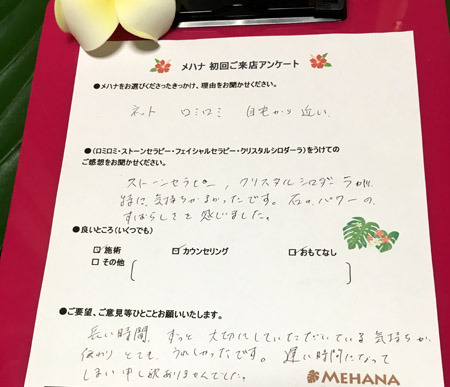 メハナ 初回ご来店アンケート
●メハナをお選びくださったきっかけ、理由をお聞かせください。
ネット ロミロミ 自宅から近い
●(ロミロミ・ストーンセラピー・フェイシャルセラピー・クリスタルシロダーラ)をうけての
ご感想をお聞かせください。
ストーンセラピー, クリスタルシロダーラが
特に気持ちよかったです。石のパワーの
すばらしさを感じました。
●良いところ(いくつでも)
☑施術 ☑カウンセリング ☑おもてなし
□その他
●ご要望、ご意見等ひとことお願いいたします。
長い時間、ずっと大切にしていただいている気持ちが
伝わりとてもうれしかったです。遅い時間になって
しまい申し訳ありませんでした。
MEHANA